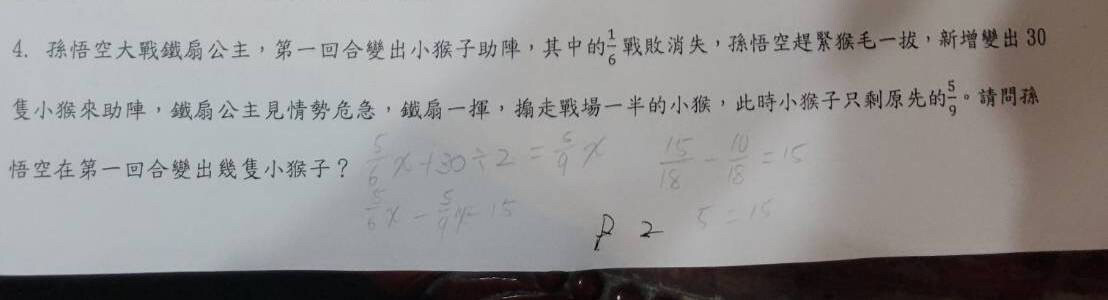 4. 孫悟空大戰鐵扇公主，第一回合變出小猴子助陣，其中的1/6戰敗消失，孫悟空趕緊猴毛一拔，新增變出30
隻小猴來助陣，鐵扇公主見情勢危急，鐵扇一揮，搧走戰場一半的小猴，此時小猴子只剩原先的5/9。請問孫
悟空在第一回合變出幾隻小猴子？
5/6 x + 30 ÷ 2 = 5/9 x
15/18 - 10/18 = 15
5/6 x - 5/9 x = 15
P 2
5 = 15